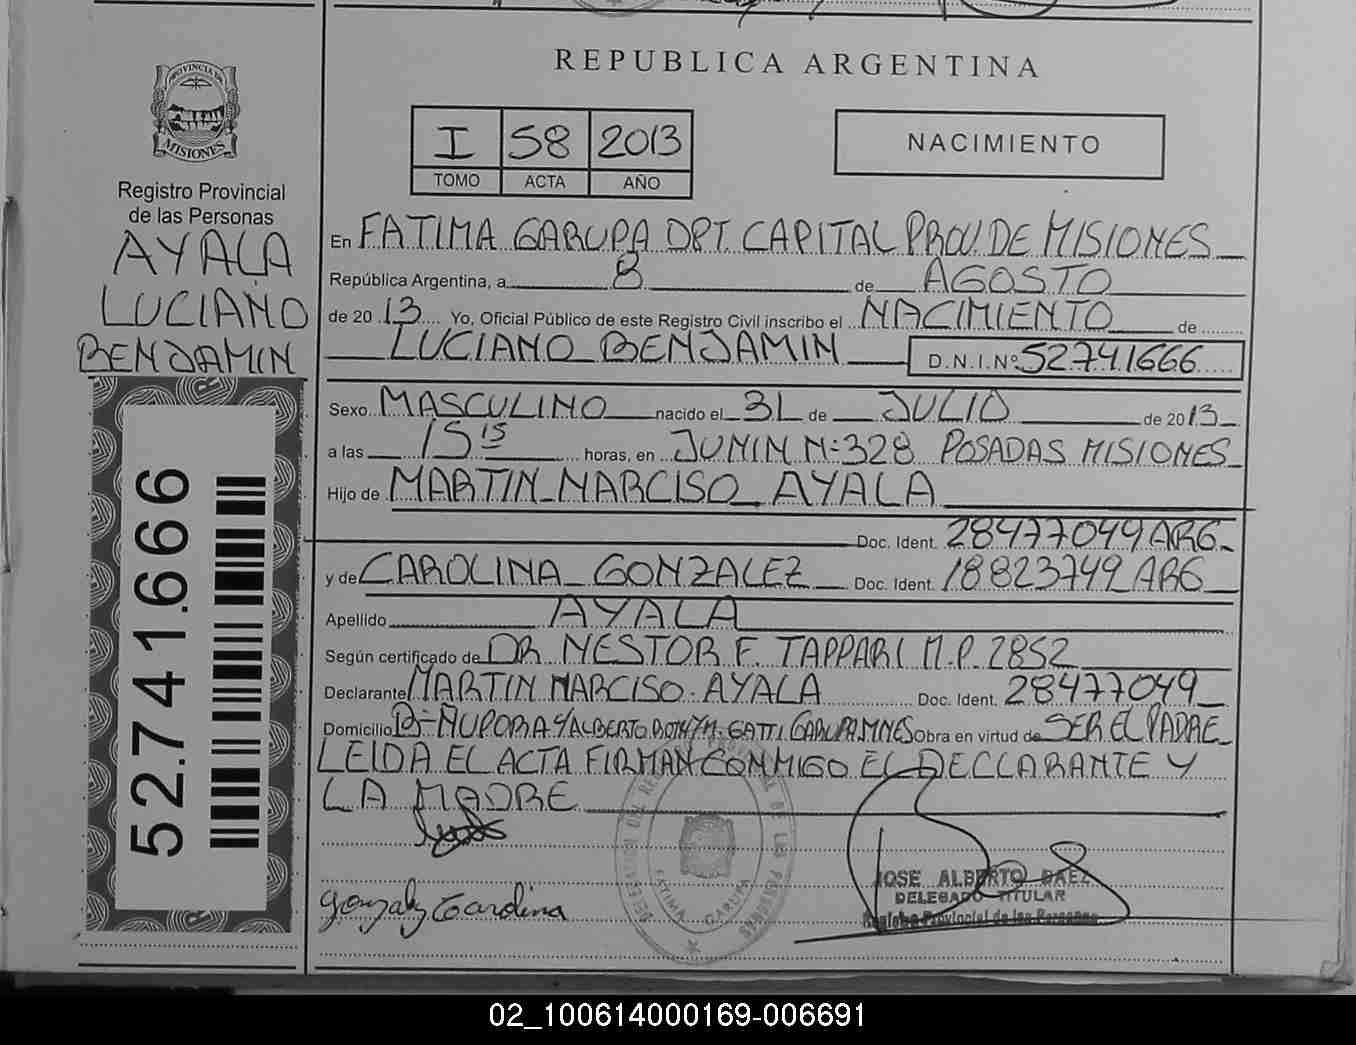 REPUBLICA ARGENTINA
PROVINCIA DE
MISIONES
Registro Provincial
de las Personas
AYALA
LUCIANO
BENJAMIN
52.741.666
I 58 2013
TOMO ACTA AÑO
NACIMIENTO
En FATIMA GARUPA DPT. CAPITAL PROV. DE MISIONES
República Argentina, a 8 de AGOSTO
de 2013 Yo, Oficial Público de este Registro Civil inscribo el NACIMIENTO de
LUCIANO BENJAMIN D.N.I.Nº 52741666
Sexo MASCULINO nacido el 31 de JULIO de 2013
a las 15 15 horas, en JUNIN N: 328 POSADAS MISIONES
Hijo de MARTIN NARCISO AYALA
Doc. Ident. 28477049 ARG
y de CAROLINA GONZALEZ Doc. Ident. 18823749 ARG
Apellido AYALA
Según certificado de DR NESTOR F. TAPPARI M.P. 2852
Declarante MARTIN NARCISO AYALA Doc. Ident. 28477049
Domicilio B- ÑUPORA Y ALBERTO ROTH M. GATTI GARUPA MNES Obra en virtud de SER EL PADRE
LEIDA EL ACTA FIRMAN CONMIGO EL DECLARANTE Y
LA MADRE
Gonzalez Carolina
FATIMA GARUPA
JOSE ALBERTO BAEZ
DELEGADO TITULAR
Registro Provincial de las Personas
02_100614000169-006691